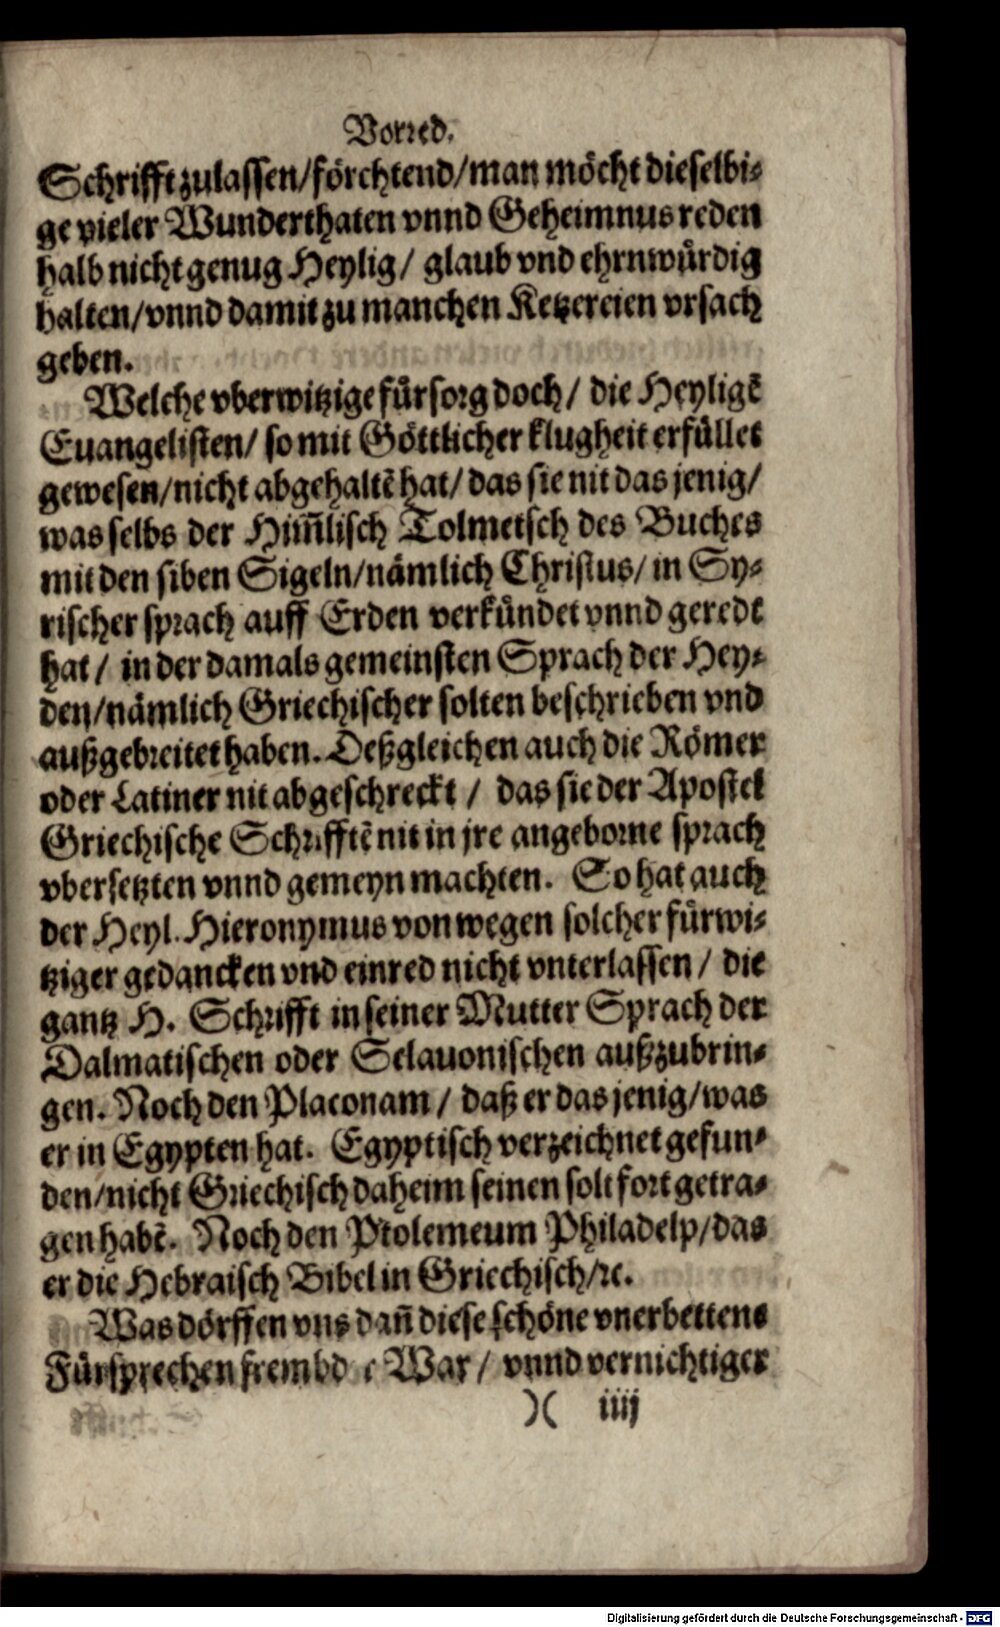 Vorred.
Schrifft zulassen/förchtend/man möcht dieselbi-
ge vieler Wunderthaten vnnd Geheimnus reden
halb nicht genug Heylig/ glaub vnd ehrnwürdig
halten/vnnd damit zu manchen Ketzereien vrsach
geben.
Welche vberwitzige fürsorg doch/ die Heyligẽ
Euangelisten/ so mit Göttlicher klugheit erfüllet
gewesen/nicht abgehaltẽ hat/ das sie nit das jenig/
was selbs der Him̃lisch Tolmetsch des Buches
mit den siben Sigeln/nämlich Christus/ in Sy-
rischer sprach auff Erden verkündet vnnd geredt
hat/ in der damals gemeinsten Sprach der Hey-
den/nämlich Griechischer solten beschrieben vnd
außgebreitet haben. Deßgleichen auch die Römer
oder Latiner nit abgeschreckt/ das sie der Apostel
Griechische Schrifftẽ nit in jre angeborne sprach
vbersetzten vnnd gemeyn machten. So hat auch
der Heyl. Hieronymus von wegen solcher fürwi-
tziger gedancken vnd einred nicht vnterlassen/ die
gantz H. Schrifft in seiner Mutter Sprach der
Dalmatischen oder Selauonischen außzubrin-
gen. Noch den Placonam/ daß er das jenig/was
er in Egypten hat. Egyptisch verzeichnet gefun-
den/nicht Griechisch daheim seinen solt fort getra-
gen habẽ. Noch den Ptolemeum Philadelp/das
er die Hebraisch Bibel in Griechisch/ꝛc.
Was dörffen vns dañ diese schöne vnerbettene
Fürsprechen frembde War/ vnnd vernichtiger
)( iiij
Digitalisierung gefördert durch die Deutsche Forschungsgemeinschaft - DFG